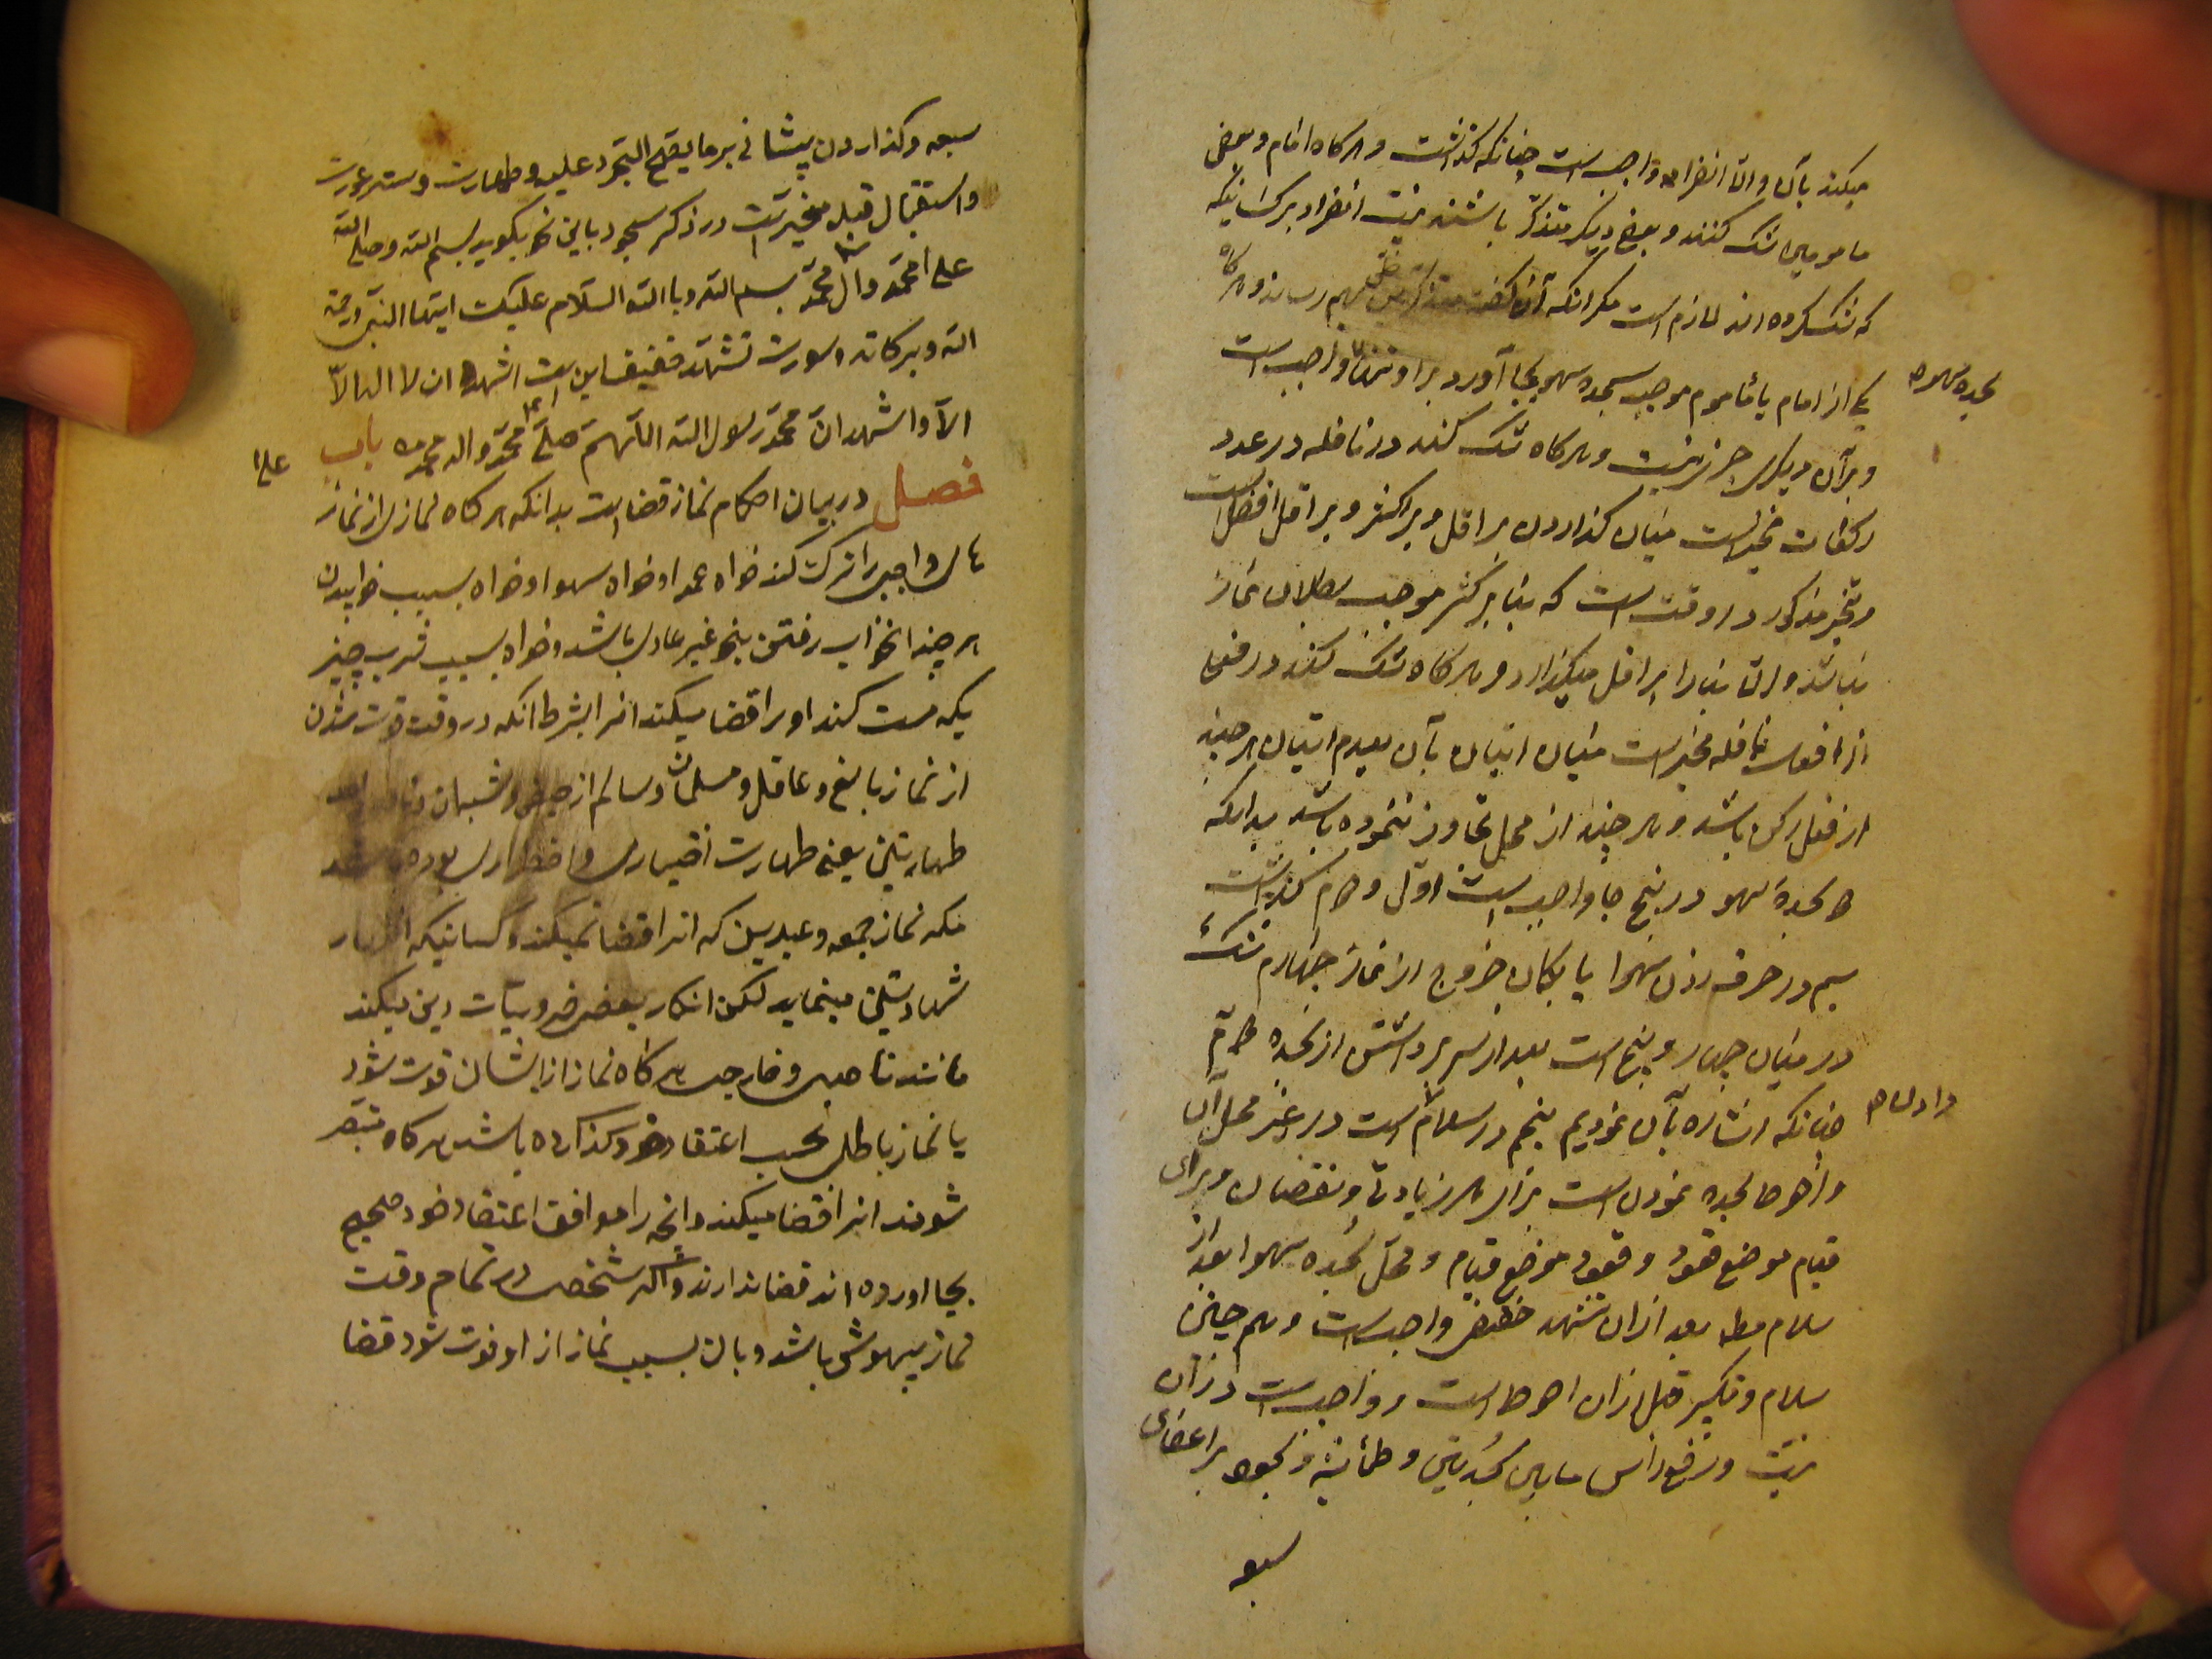 میکند بآن والا انفراد واجب است چنانکه گذشت و هرکاه امام و بعضی
مامومین شک کنند و بعضی دیگر متذکر باشند نیت انفراد بر کسانیکه
که شک کرده اند لازم است مگر انکه بهم رساند و هرکاه
یکی از امام یا ماموم موجب سجده سهو بجا آورد بر او تنها واجب است
سجده سهو
و بر آن دیگری چیزی نیست و هرکاه شک کند در نافله در عدد
رکعات مخیر است میان گذاردن بر اقل و بر اکثر و بر اقل افضل است
و تخیر مذکور در وقت است که بنا بر اکثر موجب بطلان نماز
نباشد والا بنا را بر اقل میگذارد و هرکاه شک کند در فعلی
از افعال نافله مخیر است میان اتیان بآن و عدم اتیان هرچند
از فعل رکن باشد و هرچند از محل تجاوز ننموده باشد بدانکه
سجده سهو در پنج جا واجب است اول و دوم گذشت
سیم در حرف زدن سهوا یا بکمان خروج از نماز چهارم شک
در میان چهار و پنج است بعد از سر برداشتن از سجده دوم
چنانکه اشاره بآن نمودیم پنجم در سلام است در غیر محل آن
دادن
و احوط سجده نمودن است برای هر زیادتی و نقصان و برای
قیام موضع قعود و قعود موضع قیام و محل سجده سهوا بعد از
سلام و بعد از ان تشهد خفیف واجب است و هم چنین
سلام و تکبیر قبل ازان احوط است و واجب است در آن
نیت و رفع راس مابین سجدتین و طمانینه و سجود بر اعضای
سبعه
سبعه و کذاردن پیشانی بر ما یصح السجود علیه و طهارت و ستر عورت
و استقبال قبله مخیر است در ذکر سجود باین نحو بکوید بسم الله و صلی الله
علی محمد وال محمد بسم الله و بالله السلام علیک ایها النبی ورحمة
الله وبرکاته و صورت تشهد خفیف این است اشهد ان لا اله الا
الله واشهد ان محمد رسول الله اللهم صل علی محمد واله محمد باب
علی
فصل در بیان احکام نماز قضا است بدانکه هرکاه نمازی از نماز
های واجبی را ترک کند خواه عمدا و خواه سهوا و خواه بسبب خوابیدن
هر چند انخواب رفتن بنحو غیر عادی باشد و خواه بسبب شرب چیز
یکه مست کند او را قضا میکند انرا بشرط انکه در وقت فوت شدن
از نماز بالغ و عاقل و مسلمان و سالم از حیض و نفاس و
طهارتین یعنی طهارت اختیاری و اضطراری بوده باشد
مکر نماز جمعه و عیدین که انرا قضا نمیکند و کسانیکه اظهار
شهادتین مینماید لکن انکار بعضی ضروریات دین میکند
مانند ناصبی و خارجی هرکاه نماز از ایشان فوت شود
یا نماز باطلی بحسب اعتقاد خود کذارده باشد هرکاه مستبصر
شوند انرا قضا میکند وانچه را موافق اعتقاد خود صحیح
بجا اورده اند قضا ندارند و اکر شخصی در تمام وقت
نماز بیهوش باشد و بان بسبب نماز از او فوت شود قضا